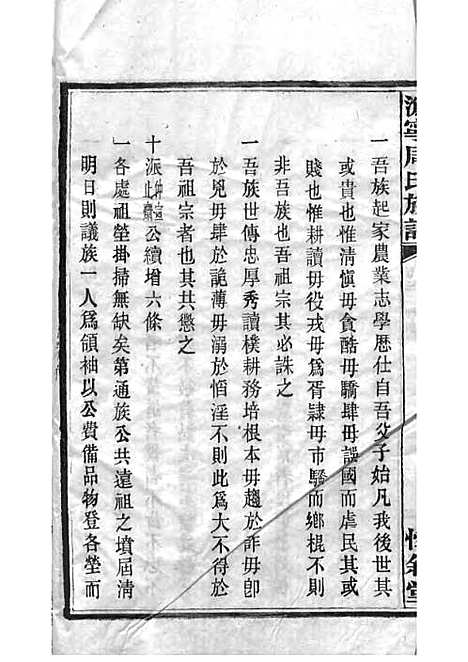 寧周氏族譜
惇敘堂
一吾族起家農業志學歷仕自吾父子始凡我後世其
或貴也惟清慎毋貪酷毋驕肆毋誤國而虐民其或
賤也惟耕讀毋役戎毋爲胥隸毋市驛而鄉棍不則
非吾族也吾祖宗其必誅之
一吾族世傳忠厚秀讀樸耕務培根本毋趨於詐毋卽
於兇毋肆於詭薄毋溺於慆淫不則此爲大不得於
吾祖宗者也其共懲之
十派此齋公續增六條
一各處祖塋掛掃無缺矣第通族公共遠祖之墳屆清
明日則議族一人爲領袖以公費備品物登各塋而